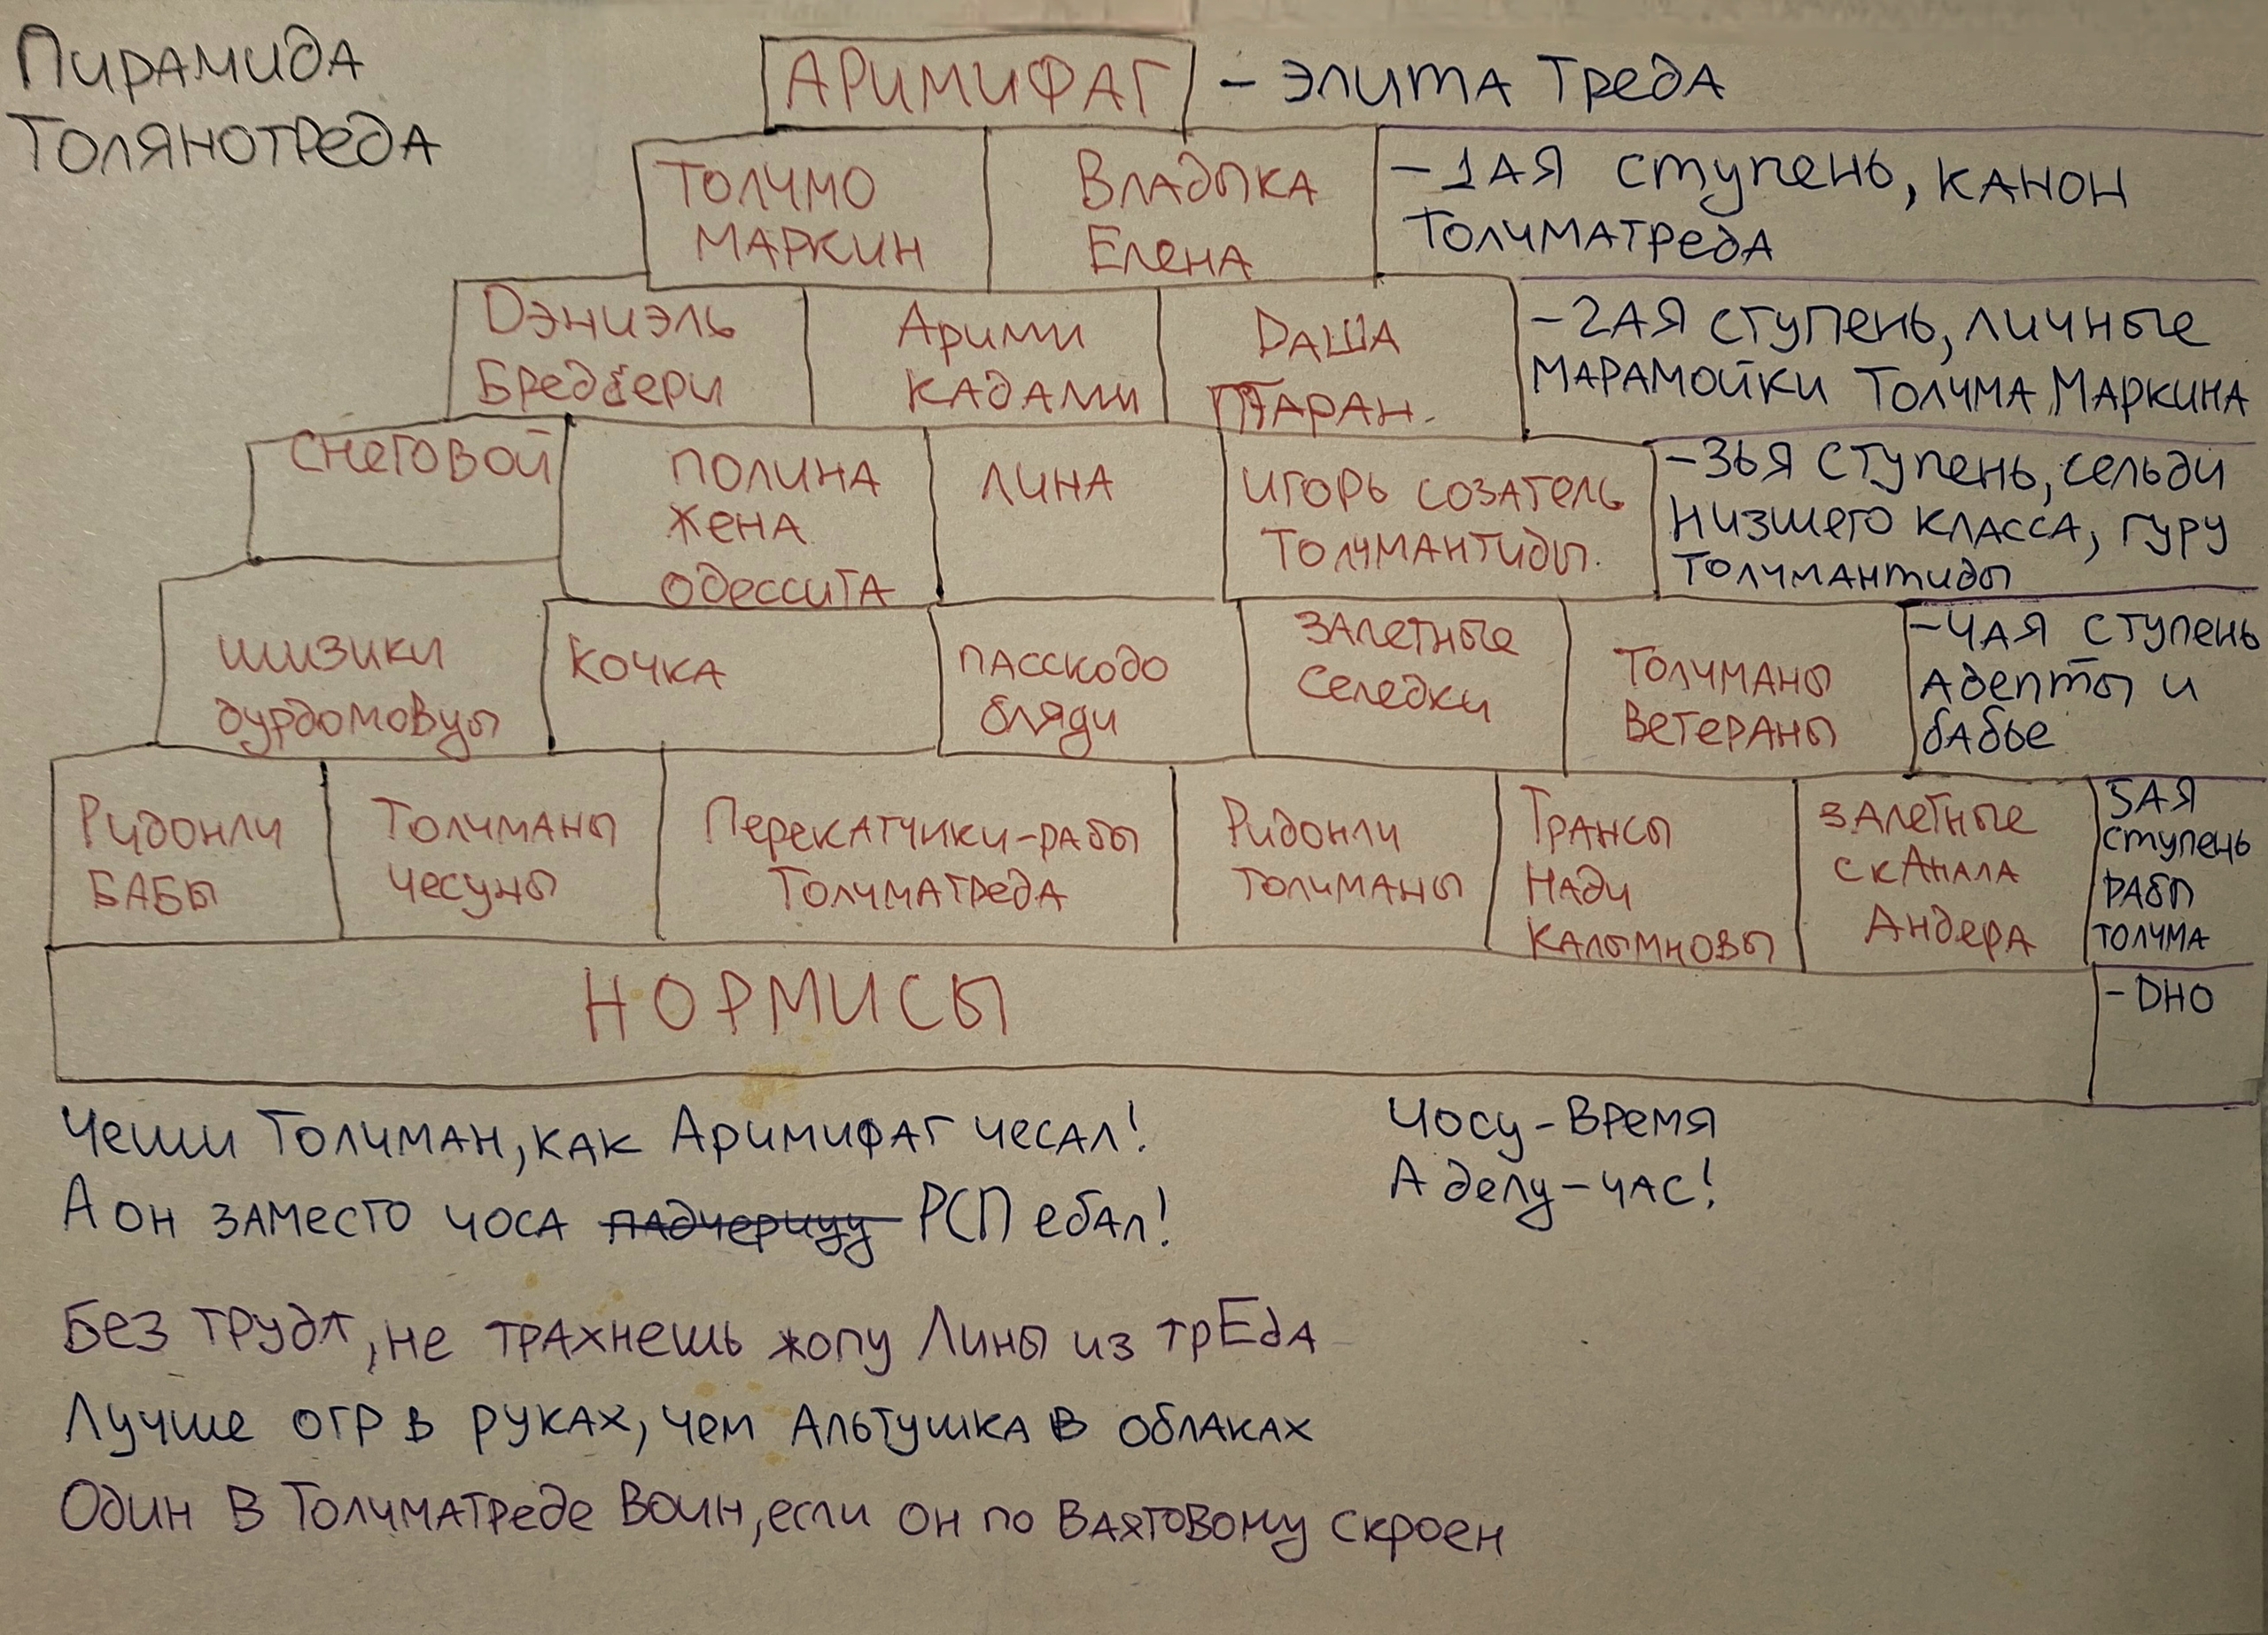 Пирамида
Толянотреда
АРИМИФАГ - элита треда
Толчмо
Маркин
Владыка
Елена
-1ая ступень, канон
Толчматреда
Дэниэль
Бредбери
Арими
Кадами
Даша
Таран.
-2ая ступень, личные
марамойки Толчма Маркина
Снеговой
Полина
жена
одессита
Лина
Игорь созатель
Толчмантиды.
-3ья ступень, сельди
низшего класса, гуру
Толчмантиды
Шизики
дурдомовцы
Кочка
пасскодо
бляди
Залетные
селедки
Толчманы
Ветераны
-4ая ступень
Адепты и
бабье
Ридонли
БАБЫ
Толчманы
чесуны
Перекатчики-рабы
Толчматреда
Ридонли
Толчманы
Трансы
Нади
Калымновы
Залетные
с канала
Андера
5ая
ступень
рабы
толчма
НОРМИСЫ
-Дно
Чеши Толчман, как Аримифаг чесал!
А он заместо чоса падчерицу РСП ебал!
Чосу-время
А делу-час!
Без труда, не трахнешь жопу Лины из трЕда
Лучше огр в руках, чем Альтушка в облаках
Один в Толчматреде воин, если он по Вахтовому скроен